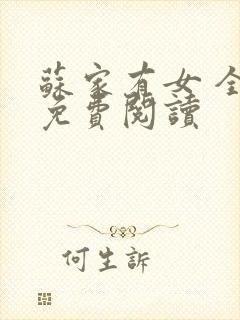 蘇家有女 全
免費閱讀
何生訴